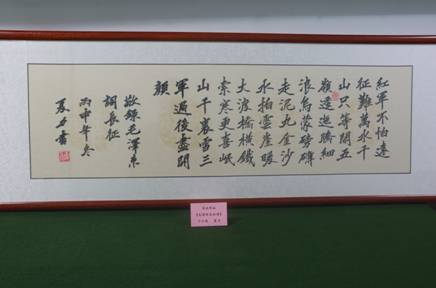 紅軍不怕遠
征難萬水千
山只等閒五
嶺逶迤騰細
浪烏蒙磅礴
走泥丸金沙
水拍雲崖暖
大渡橋橫鐵
索寒更喜岷
山千裏雪三
軍過後盡開
顏
敬錄毛澤東
詞長征
丙申年冬
書